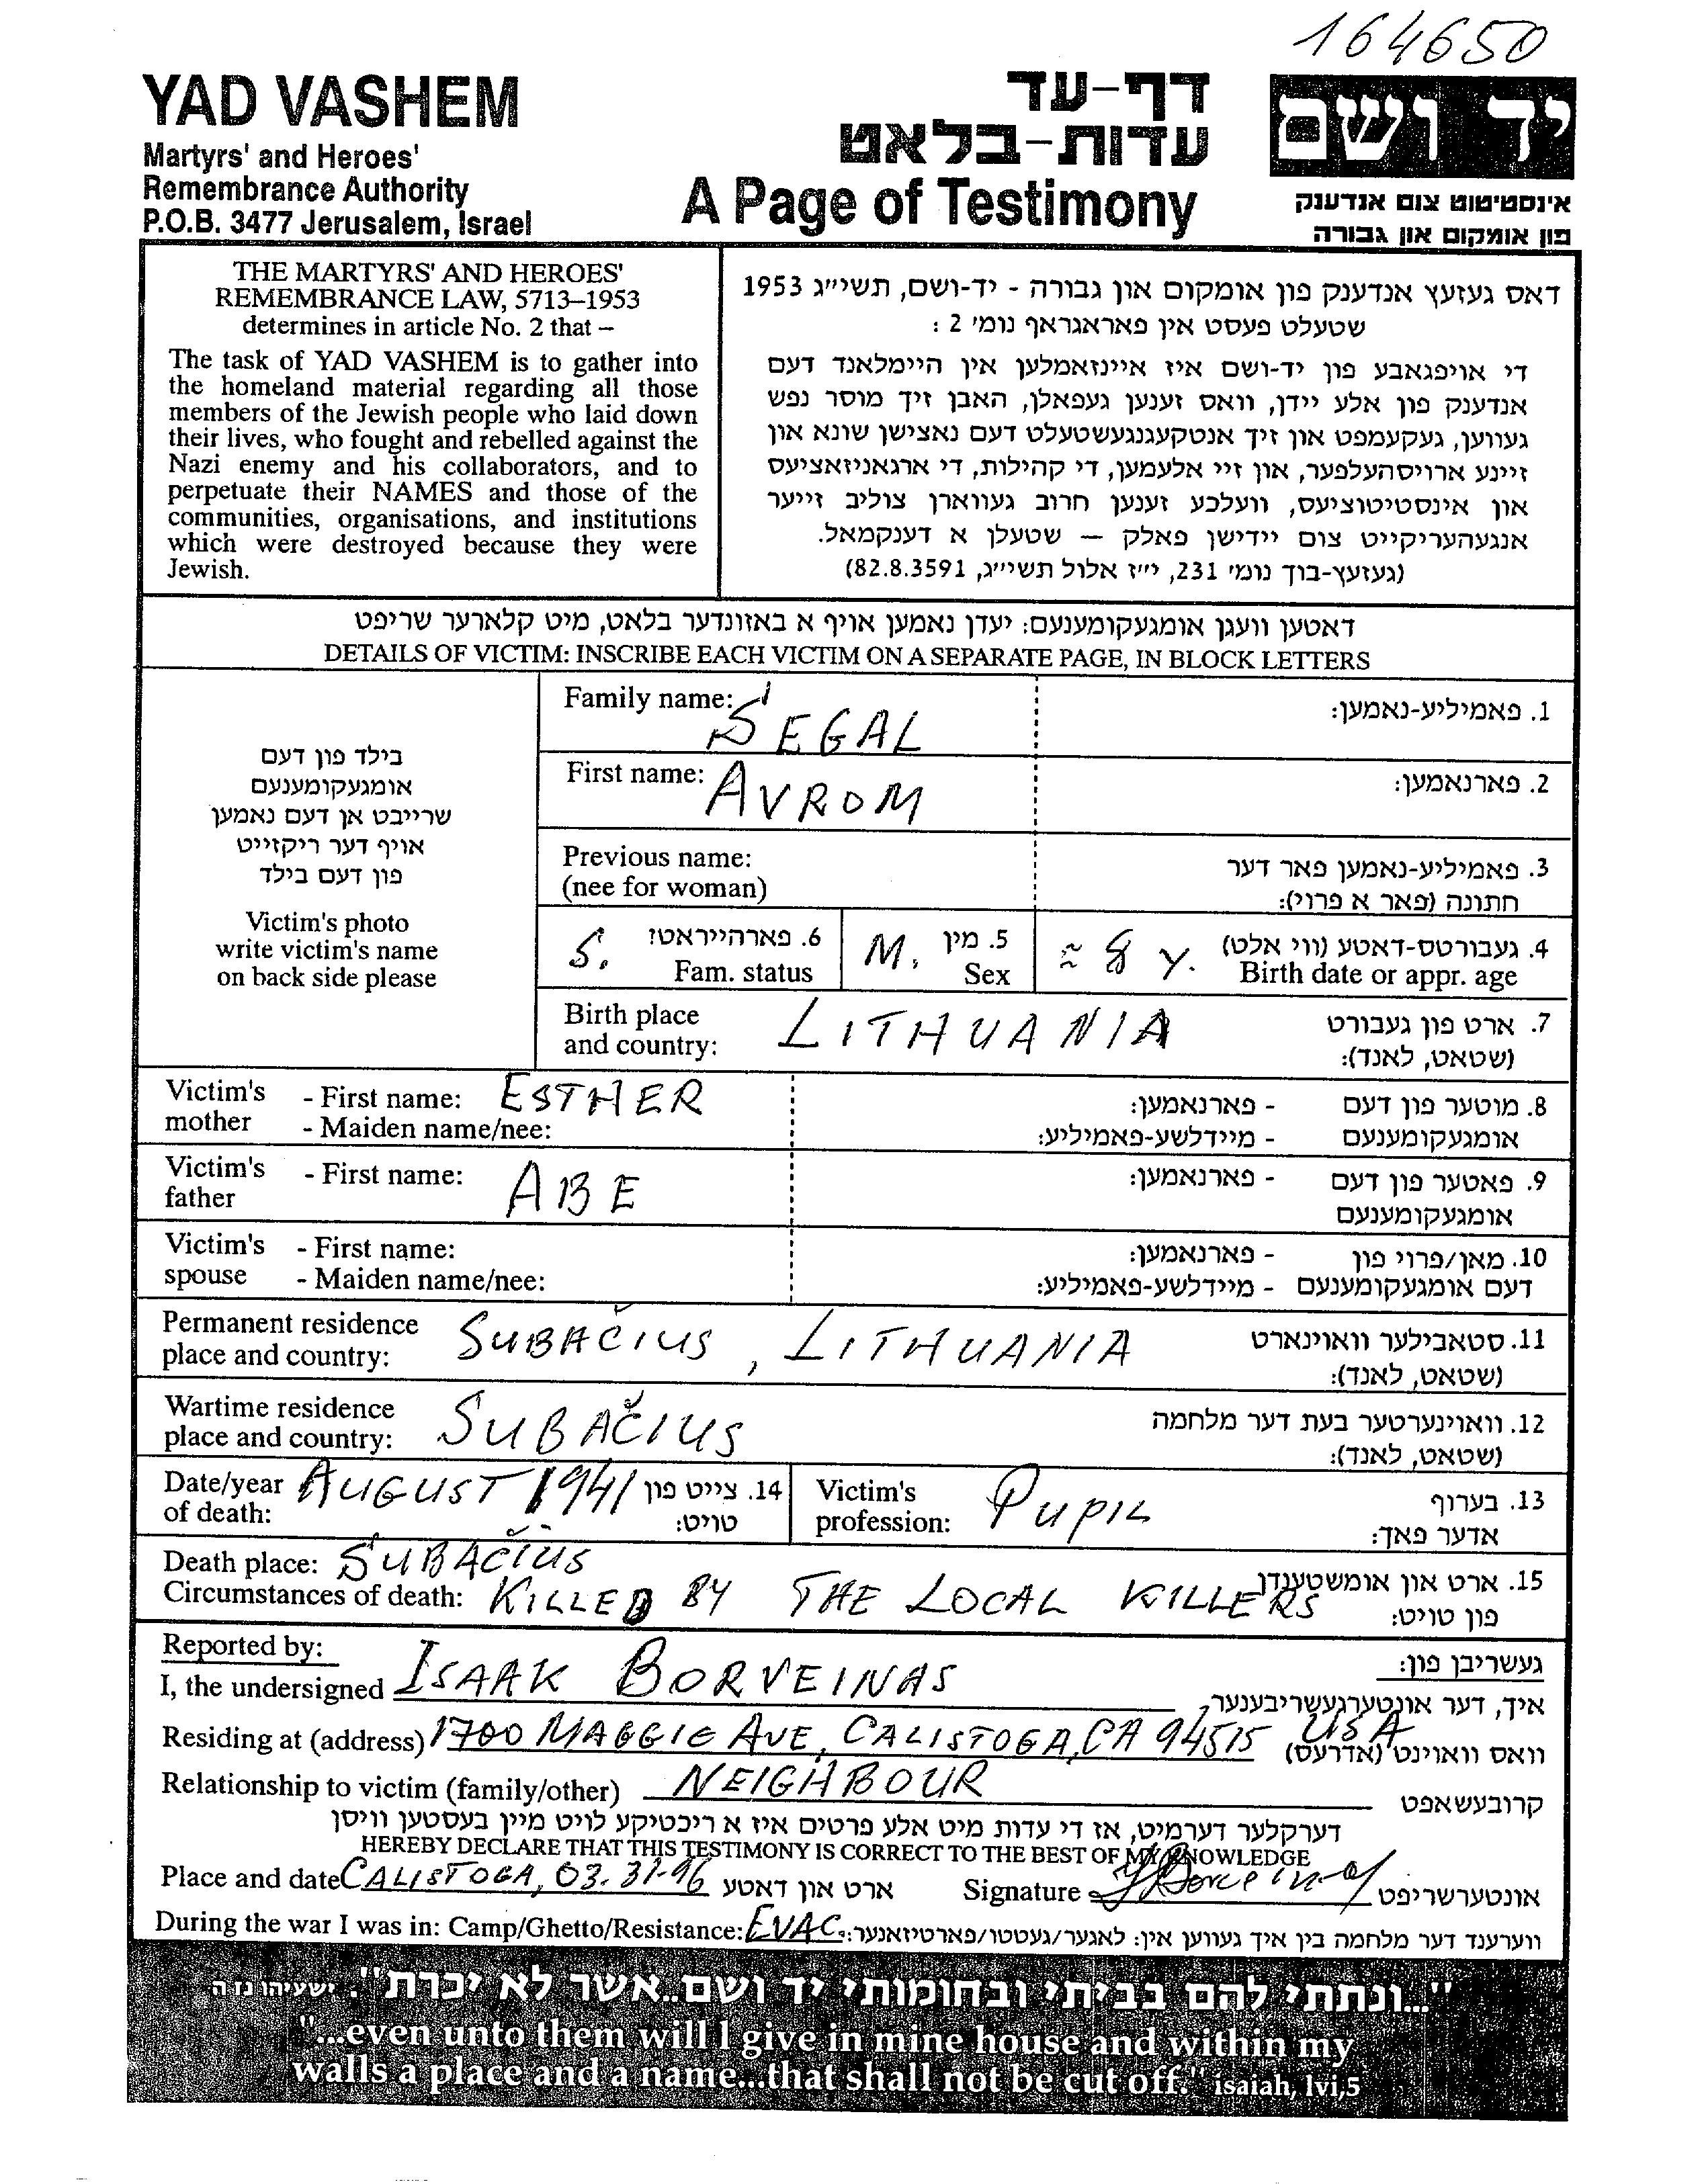 164650
YAD VASHEM
Martyrs' and Heroes'
Remembrance Authority
P.O.B. 3477 Jerusalem, Israel
דף-עד
עדות-בלאט
A Page of Testimony
יד ושם
אינסטיטוט צום אנדענק
פון אומקום און גבורה
THE MARTYRS' AND HEROES'
REMEMBRANCE LAW, 5713–1953
determines in article No. 2 that –
The task of YAD VASHEM is to gather into
the homeland material regarding all those
members of the Jewish people who laid down
their lives, who fought and rebelled against the
Nazi enemy and his collaborators, and to
perpetuate their NAMES and those of the
communities, organisations, and institutions
which were destroyed because they were
Jewish.
דאס געזעץ אנדענק פון אומקום און גבורה - יד-ושם, תשי״ג 1953
שטעלט פעסט אין פאראגראף נומ׳ 2 :
די אויפגאבע פון יד-ושם איז איינזאמלען אין היימלאנד דעם
אנדענק פון אלע יידן, וואס זענען געפאלן, האבן זיך מוסר נפש
געווען, געקעמפט און זיך אנטקעגנגעשטעלט דעם נאצישן שונא און
זיינע ארויסהעלפער, און זיי אלעמען, די קהילות, די ארגאניזאציעס
און אינסטיטוציעס, וועלכע זענען חרוב געווארן צוליב זייער
אנגעהעריקייט צום יידישן פאלק — שטעלן א דענקמאל.
(געזעץ-בוך נומ׳ 231, י״ז אלול תשי״ג, 82.8.3591)
דאטען וועגן אומגעקומענעם: יעדן נאמען אויף א באזונדער בלאט, מיט קלארער שריפט
DETAILS OF VICTIM: INSCRIBE EACH VICTIM ON A SEPARATE PAGE, IN BLOCK LETTERS
בילד פון דעם
אומגעקומענעם
שרייבט אן דעם נאמען
אויף דער ריקזייט
פון דעם בילד
Victim's photo
write victim's name
on back side please
Family name: SEGAL 1. פאמיליע-נאמען:
First name: AVROM 2. פארנאמען:
Previous name: 3. פאמיליע-נאמען פאר דער
(nee for woman) חתונה (פאר א פרוי):
S. 6. פארהייראט? M. 5. מין ≈ 8 Y. 4. געבורטס-דאטע (ווי אלט)
Fam. status Sex Birth date or appr. age
Birth place LITHUANIA 7. ארט פון געבורט
and country: (שטאט, לאנד):
Victim's - First name: ESTHER - פארנאמען: 8. מוטער פון דעם
mother - Maiden name/nee: - מיידלשע-פאמיליע: אומגעקומענעם
Victim's - First name: ABE - פארנאמען: 9. פאטער פון דעם
father אומגעקומענעם
Victim's - First name: - פארנאמען: 10. מאן/פרוי פון
spouse - Maiden name/nee: - מיידלשע-פאמיליע: דעם אומגעקומענעם
Permanent residence SUBAČIUS, LITHUANIA 11. סטאבילער וואוינארט
place and country: (שטאט, לאנד):
Wartime residence SUBAČIUS 12. וואוינערטער בעת דער מלחמה
place and country: (שטאט, לאנד):
Date/year AUGUST 1941 14. צייט פון Victim's PUPIL 13. בערוף
of death: טויט: profession: אדער פאך:
Death place: SUBAČIUS 15. ארט און אומשטענדן
Circumstances of death: KILLED BY THE LOCAL KILLERS פון טויט:
Reported by: געשריבן פון:
I, the undersigned ISAAK BORVEINAS איך, דער אונטערגעשריבענער,
Residing at (address) 1700 MAGGIE AVE, CALISTOGA, CA 94515 USA וואס וואוינט (אדרעס)
Relationship to victim (family/other) NEIGHBOUR קרובעשאפט
דערקלער דערמיט, אז די עדות מיט אלע פרטים איז א ריכטיקע לויט מיין בעסטען וויסן
HEREBY DECLARE THAT THIS TESTIMONY IS CORRECT TO THE BEST OF MY KNOWLEDGE
Place and date CALISTOGA, 03.31-96 ארט און דאטע Signature אונטערשריפט
During the war I was in: Camp/Ghetto/Resistance: EVAC. ווערענד דער מלחמה בין איך געווען אין: לאגער/געטטו/פארטיזאנער:
"...ונתתי להם בביתי ובחומותי יד ושם..אשר לא יכרת". ישעיהו נו ה
"...even unto them will I give in mine house and within my
walls a place and a name...that shall not be cut off." isaiah, lvi,5